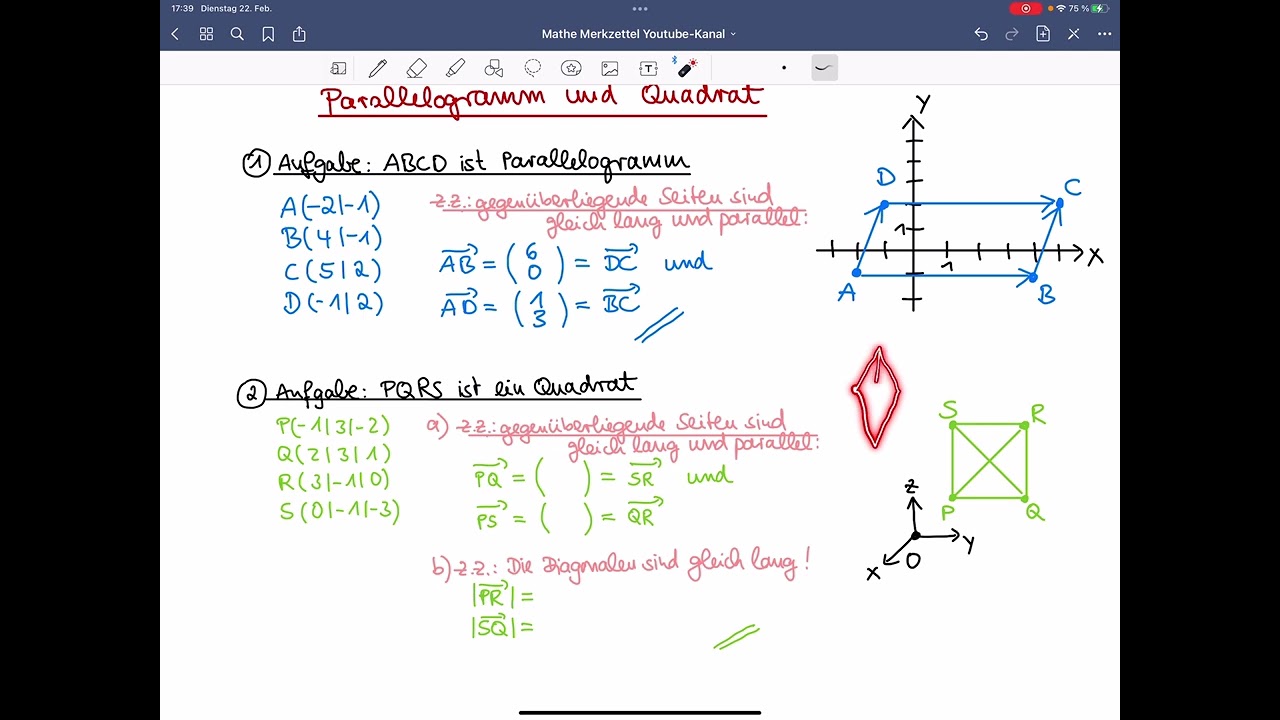 17:39 Dienstag 22. Feb.
75 %
Mathe Merkzettel Youtube-Kanal
Parallelogramm und Quadrat
① Aufgabe: ABCD ist Parallelogramm
A(-2|-1)
B(4|-1)
C(5|2)
D(-1|2)
z.z.: gegenüberliegende Seiten sind
gleich lang und parallel:
AB = (6 0) = DC und
AD = (1 3) = BC
Y
D
C
1
X
1
A
B
② Aufgabe: PQRS ist ein Quadrat
P(-1|3|-2)
Q(2|3|1)
R(3|-1|0)
S(0|-1|-3)
a) z.z.: gegenüberliegende Seiten sind
gleich lang und parallel:
PQ = ( ) = SR und
PS = ( ) = QR
b) z.z.: Die Diagonalen sind gleich lang!
|PR| =
|SQ| =
S
R
P
Q
Z
Y
X
O